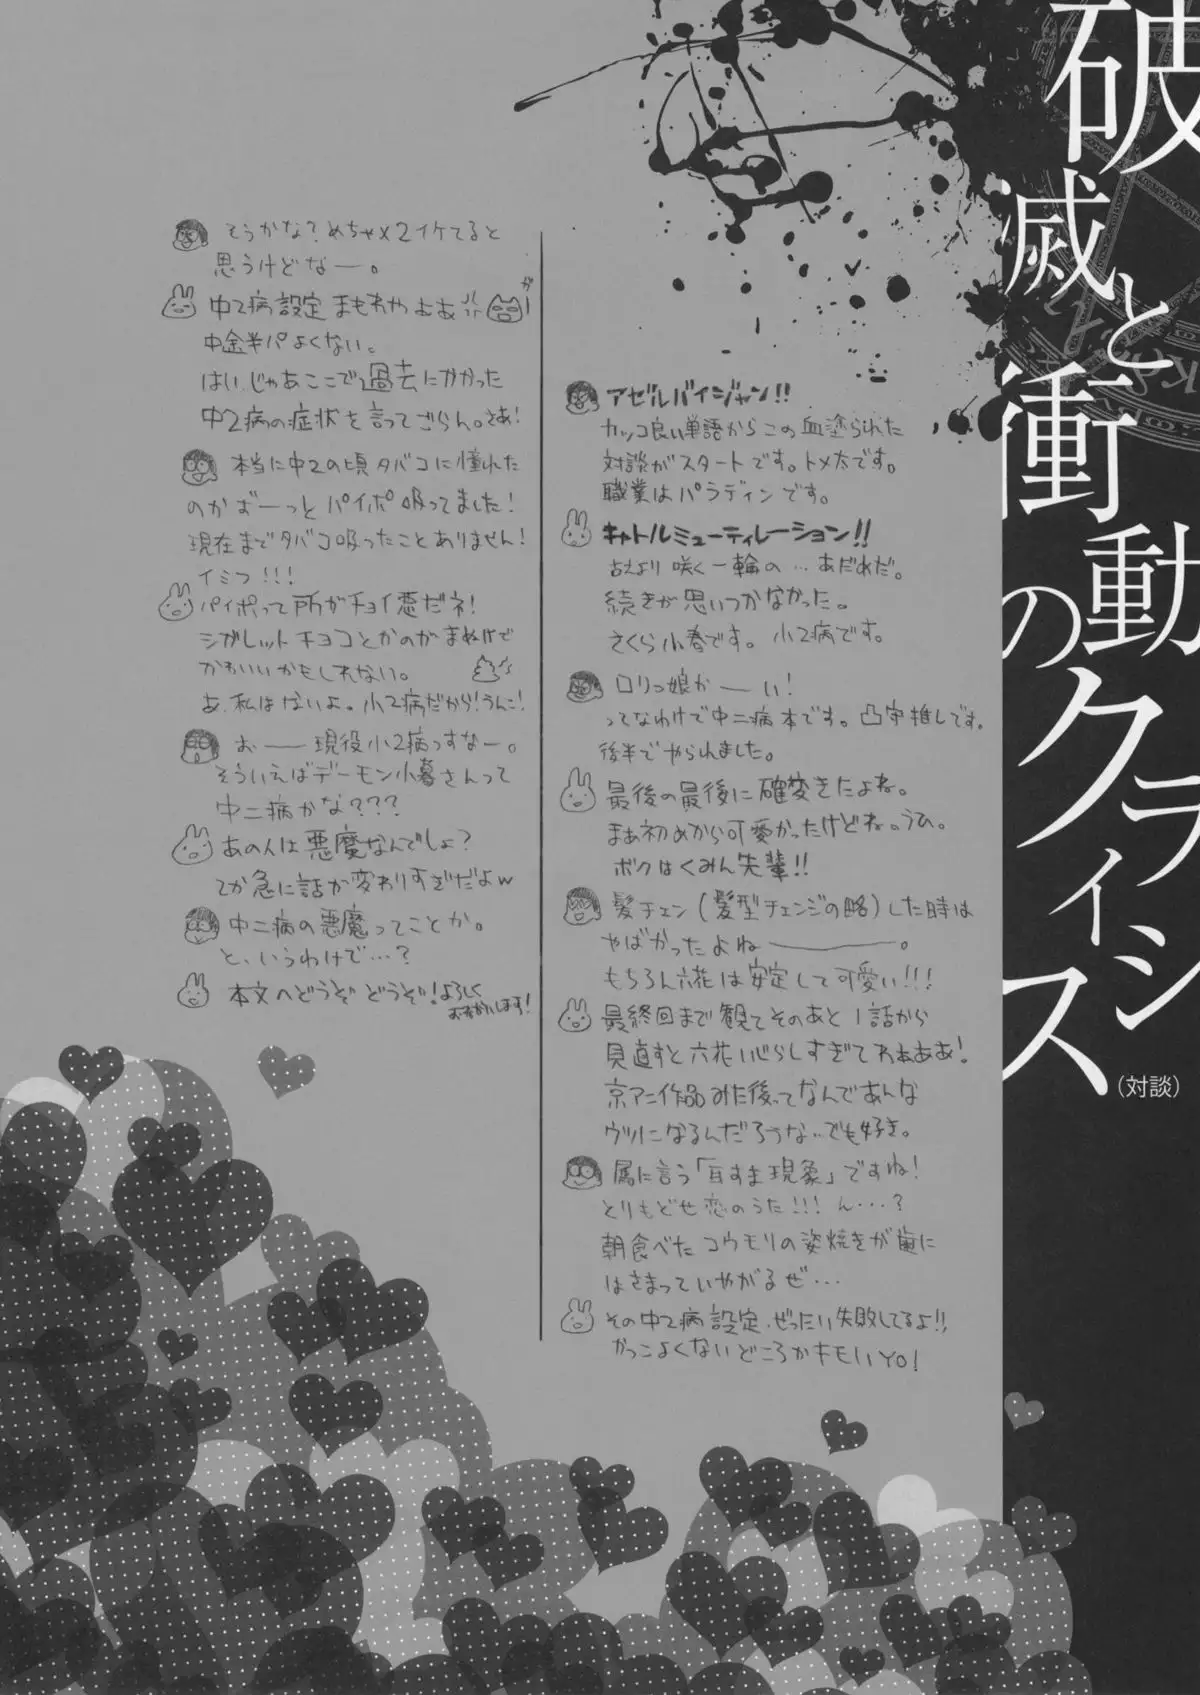 破滅と衝動のクライシス
(対談)
アゼルバイジャン!!
カッコ良い単語からこの血塗られた
対談がスタートです。トメ太です。
職業はパラディンです。
キャトルミューティレーション!!
古えより咲く一輪の…あだめだ。
続きが思いつかなかった。
さくら小春です。小2病です。
ロリっ娘かーい!
ってなわけで中二病本です。凸守推しです。
後半でやられました。
最後の最後に確変きたよね。
まぁ初めから可愛かったけどね。うひ。
ボクはくみん先輩!!
髪チェン(髪型チェンジの略)した時は
やばかったよねー。
もちろん六花は安定して可愛い!!!
最終回まで観てそのあと1話から
見直すと六花いじらしすぎてわぁああ!
京アニ作品みた後ってなんであんな
ウツになるんだろうな…でも好き。
属に言う「耳すま現象」ですね!
とりもどせ恋のうた!!!ん…?
朝食べたコウモリの姿焼きが歯に
はさまっていやがるぜ…
その中2病設定、ぜったい失敗してるよ!!
かっこよくないどころかキモいYO!
そうかな?めちゃ×2イケてると
思うけどなー。
中2病設定まもれやょぉぁ
がー
中途半パよくない。
はい、じゃあここで過去にかかった
中2病の症状を言ってごらん。さぁ!
本当に中2の頃タバコに憧れた
のかずーっとパイポ吸ってました!
現在までタバコ吸ったことありません!
イミフ!!!
パイポって所がチョイ悪だネ!
シガレットチョコとかのがまぬけで
かわいいかもしれない。
あ、私はないよ。小2病だから!うんこ!
おー現役小2病っすなー。
そういえばデーモン小暮さんって
中二病かな???
あの人は悪魔なんでしょ?
てか急に話が変わりすぎだよw
中二病の悪魔ってことか。
と、いうわけで…?
本文へどうぞどうぞ!よろしく
おねがいします!